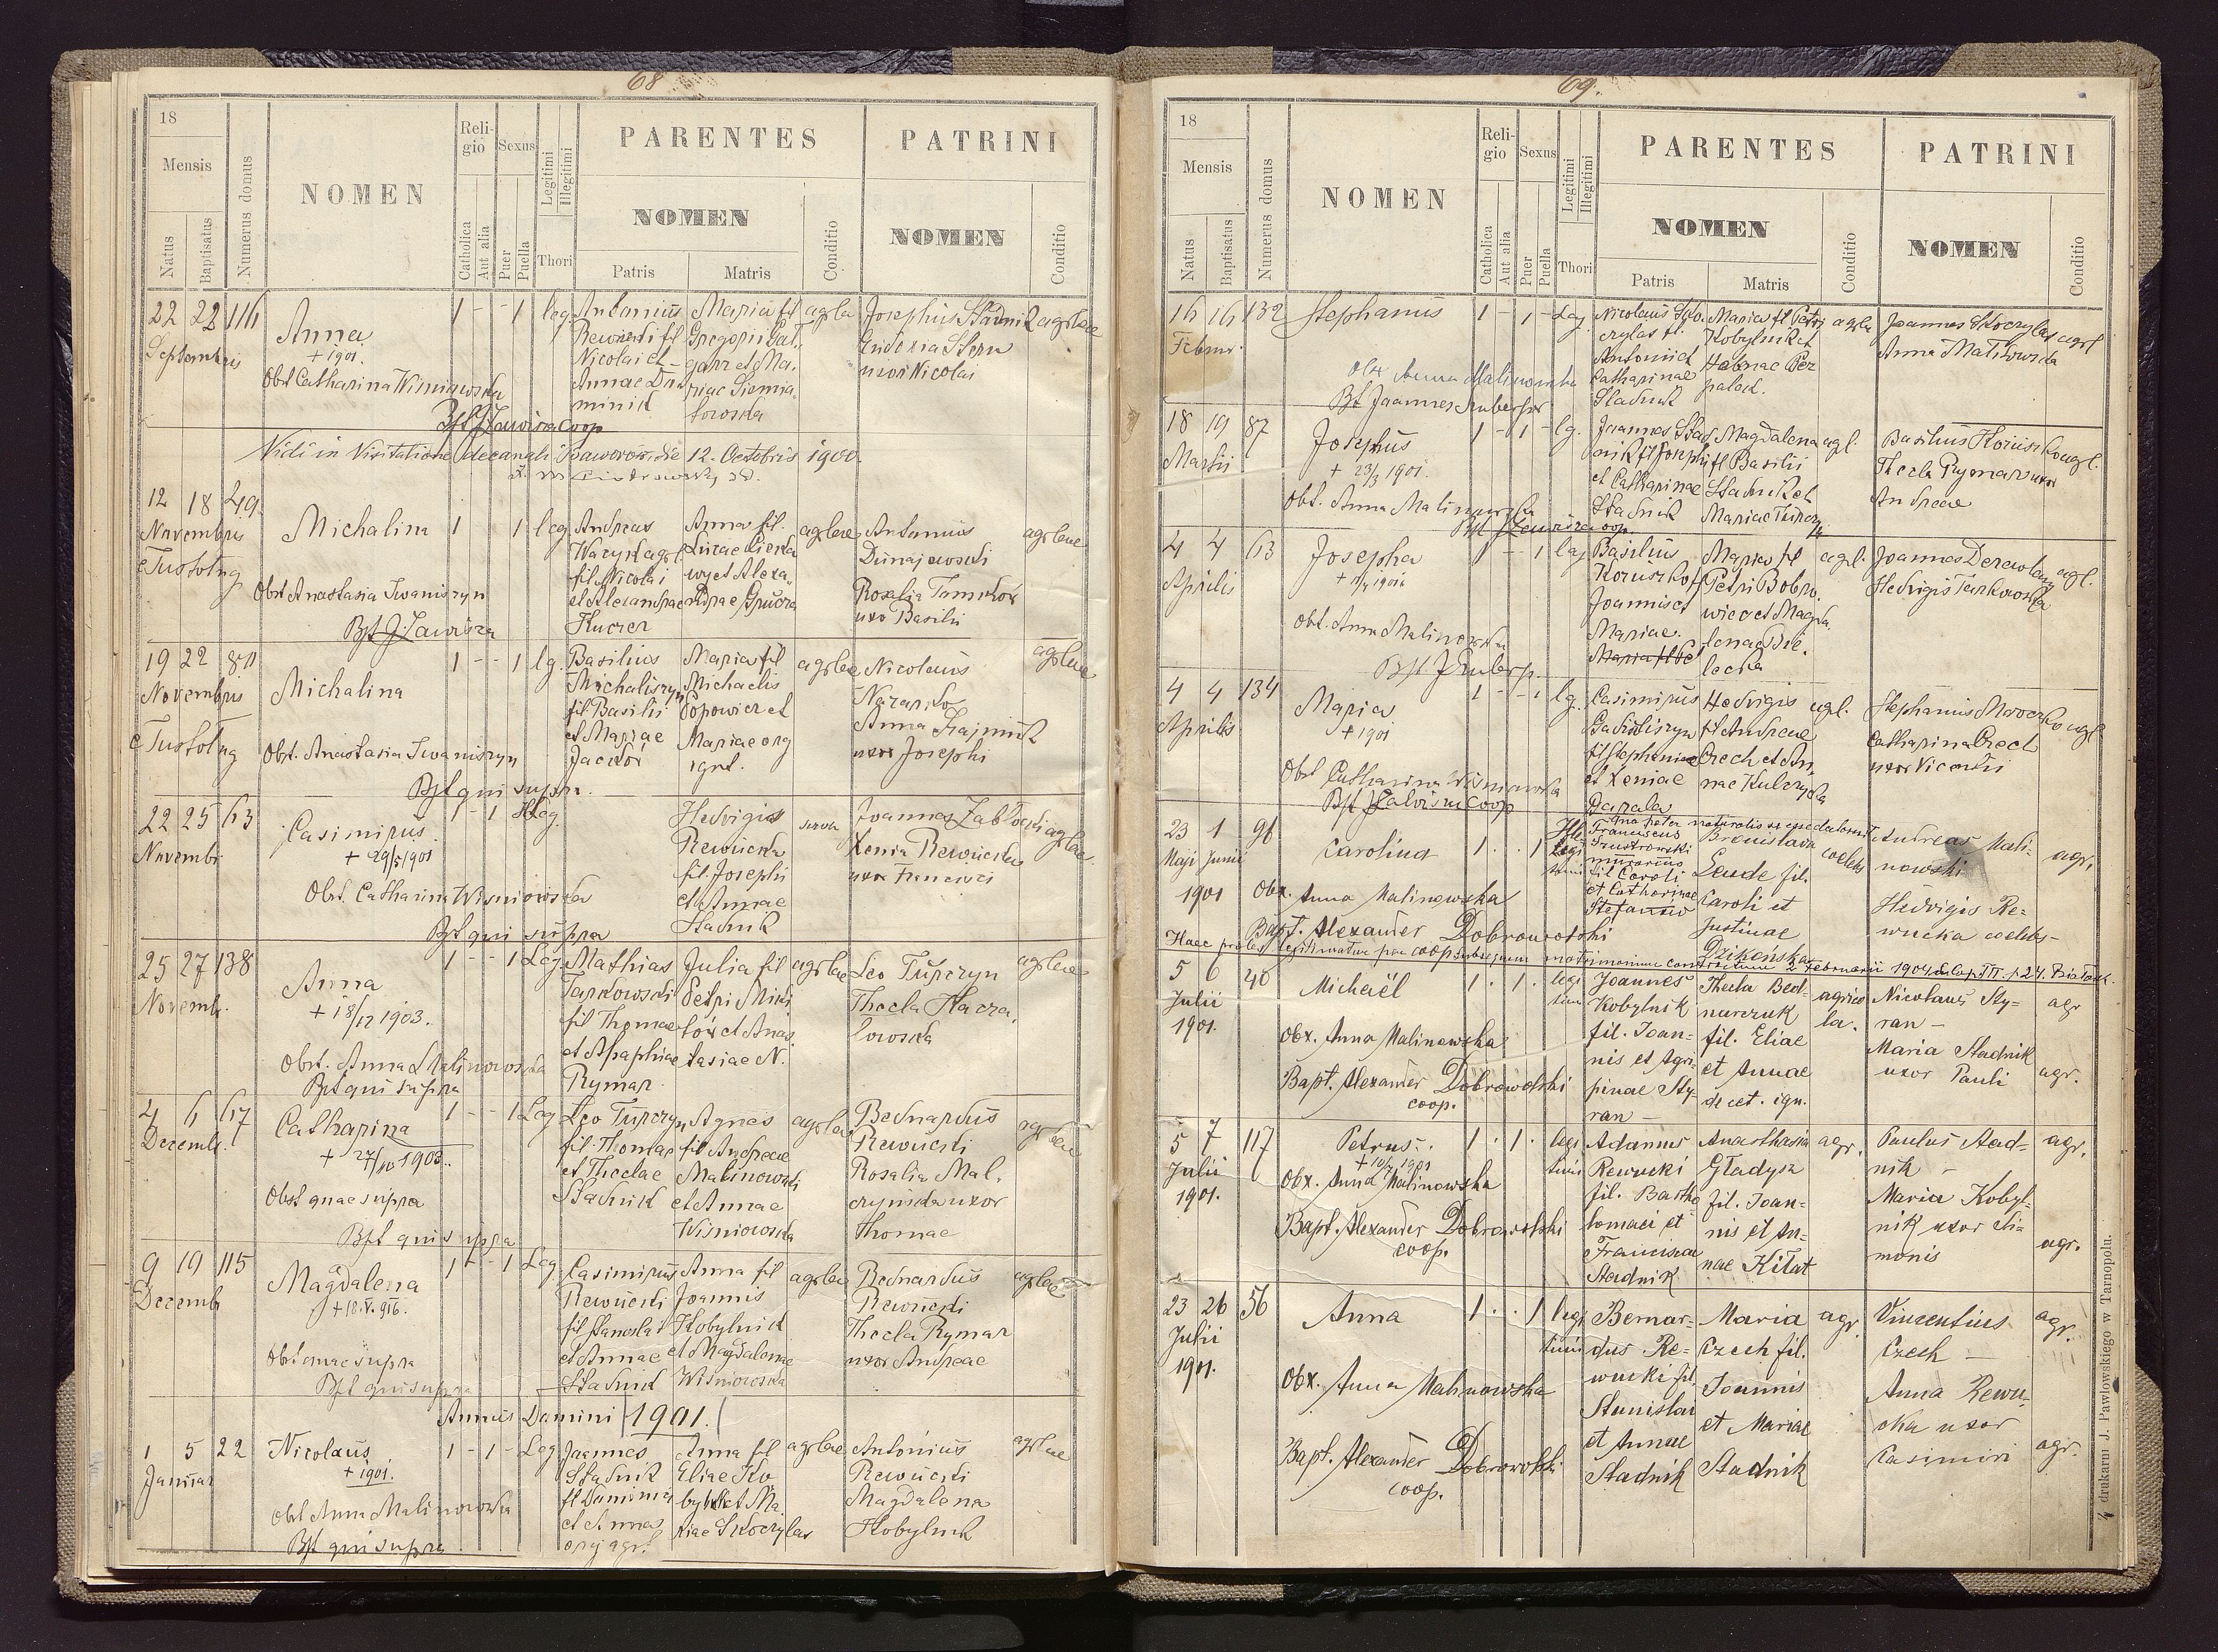 68
18
Mensis
Natus
Baptisatus
Numerus domus
NOMEN
Religio
Catholica
Aut alia
Sexus
Puer
Puella
Legitimi
Illegitimi
Thori
PARENTES
NOMEN
Patris
Matris
Conditio
PATRINI
NOMEN
Conditio
22 22 116
Septembris
Anna
+ 1901.
Obst Catharina Wisniowska
1 - - 1 leg.
Antonius
Rewucki fil
Nicolai et
Annae Do
minik
Maria fil
Gregorii
et Ma-
riae
agrlae
Josephus Stadnik
uxor Nicolai
agrlae
coop
Vidi in Visitatione decanali Baworów die 12. Octobris 1900.
12 18 49.
Novembris
Michalina
Obst Anastasia Iwaniszyn
Bpt J. Zawisza
1 1 leg
Andreas
fil Nicolai
et Alexandrae
Kuczer
Anna fil.
Lucae
et Alexa-
ndrae
agrlae
Antonius
Dunajewski
Rosalia
uxor Basilii
agrlae
19 22 87
Novembris
Michalina
Obst. Anastasia Iwaniszyn
Bpt qui supra.
1 - - 1 lg.
Basilius
Michaliszyn
fil Basilii
et Mariae
Jacków
Maria fil
Michaelis
Popowicz et
Mariae orig
ignt.
agrlae
Nicolaus
Nazarko
Anna
uxor Josephi
agrlae
22 25 63
Novembr.
Casimirus
+ 29/5 1901
Obst. Catharina Wisniowska
Bpt qui supra
1 - 1 - Illeg.
Hedvigis
Rewucka
fil. Josephi
et Annae
Stadnik
serva
Joannes Zabłocki
Xenia Rewucka
uxor Francisci
agrlae.
25 27 138
Novemb.
Anna
+ 18/12 1903.
Obst. Anna Malinowska
Bpt qui supra
1 - - 1 Leg.
Mathias
Tarkowski
fil Thomae
et Agaphiae
Rymar
Julia fil
Petri Miki
tów et Anas
tasiae N.
agrlae
Leo Turczyn
Thecla Kacza-
łowska
agrlae
4 6 67
Decemb.
Catharina
+ 27/10 1903.
Obst quae supra
Bpt qui supra
1 - - 1 Leg
Leo Turczyn
fil. Thomae
et Theclae
Stadnik
Agnes
fil Andreae
Malinowski
et Annae
Wisniowska
agrlae
Bednardus
Rewucki
Rosalia Mal-
czynska uxor
Thomae
agrlae
9 19 115
Decemb
Magdalena
+ 18.V.916.
Obst quae supra
Bpt qui supra
1 - - 1 Leg
Casimirus
Rewucki
fil Stanislai
et Annae
Stadnik
Anna fil
Joannis
Kobylnik
et Magdalenae
Wisniowska
agrlae
Bednardus
Rewucki
Thecla Rymar
uxor Andreae
agrlae
Annus Domini 1901.
1 5 22
Januar
Nicolaus
+ 1901.
Obst Anna Malinowska
Bpt qui supra
1 - 1 - Leg
Joannes
Stadnik
fil Dominici
et Annae
Anna fil
Eliae Ko
bylnik et Ma
riae Skoczylas
agrlae
Antonius
Rewucki
Magdalena
Kobylnik
agrlae
69.
18
Mensis
Natus
Baptisatus
Numerus domus
NOMEN
Religio
Catholica
Aut alia
Sexus
Puer
Puella
Legitimi
Illegitimi
Thori
PARENTES
NOMEN
Patris
Matris
Conditio
PATRINI
NOMEN
Conditio
16 16 132
Februar.
Stephanus
Obx Anna Malinowska
1 - 1 - Leg.
Nicolaus Sko-
czylas fil.
Antonii et
Catharinae
Stadnik
Maria fil Petri
Kobylnik et
Helenae Per
palak.
agrla
Joannes Skoczylas
Anna Malinowska
agrl
18 19 87
Martii
Josephus
+ 23/3 1901.
Obt. Anna Malinowska
1 - 1 - lg.
Joannes Stad
nik fil Josephi
et Catharinae
Stadnik
Magdalena
fil Basilii
Stadnik et
Mariae
agl.
Basilius Koruszko
Thecla Rymar uxor
Andreae
agl.
4 4 63
Aprilis
Josepha
Obt. Anna Malinowska
1 - - 1 leg
Basilius
Koruszko f
Joannis et
Mariae.
Maria fil
Petri Bobro-
wicz et Magda-
lenae Bie-
lecka
agl.
Joannes Derewlany
Hedvigis Tarkowska
agl.
4 4 134
Aprilis
Maria
+ 1901
Obst Catharina Wisniowska
coop
1 - - 1 lg.
Casimirus
fil Stephani
et Xeniae
Hedvigis
fil Andreae
Czech et An-
nae Kulczycka
agl.
Stephanus
Catharina Czech
uxor Vicentii
agl
23 1 96
Maji Junii
1901
Carolina
Obx. Anna Malinowska
Bapt. Alexander Dobrowolski
1 . . 1
Franciscus
fil Caroli
et Catharinae
Bronislava
Leude fil.
Caroli et
Justinae
coelebs
Andreas Mali-
nowski
Hedvigis Re-
wucka coelebs-
agr.
5 6 40
Julii
1901.
Michaël
Obx. Anna Malinowska
Bapt. Alexander Dobrowolski
coop.
1 . 1 . legi
timi
Joannes
Kobylnik
fil. Joan-
nis et Agri-
pinae Sty-
ran -
Thecla Bed-
narczuk
fil. Eliae
et Annae
de cet. ign.
agrico
la.
Nicolaus Sty-
ran -
Maria Stadnik
uxor Pauli
agr
agr.
5 7 117
Julii
1901.
Petrus.
Obx. Anna Malinowska
Bapt. Alexander Dobrowolski
coop.
1 . 1 . legi
timi
Adamus
Rewucki
fil. Bartho
lomaei et
Francisca
Stadnik
Anasthasia
Gładysz
fil. Joan-
nis et An-
nae Kitat
agr.
Paulus Stad-
nik -
Maria Kobyl-
nik uxor Si-
monis
agr.
agr.
23 26 56
Julii
1901.
Anna
Obx. Anna Malinowska
Bapt. Alexander Dobrowolski
coop.
1 . . 1 legi
timi
Bernar-
dus Re-
wucki fil.
Stanislai
et Annae
Stadnik
Maria
Czech fil.
Joannis
et Mariae
Stadnik
agr.
Vincentius
Czech -
Anna Rewu-
cka uxor
Casimiri
agr.
agr.
drukarni J. Pawłowskiego w Tarnopolu.